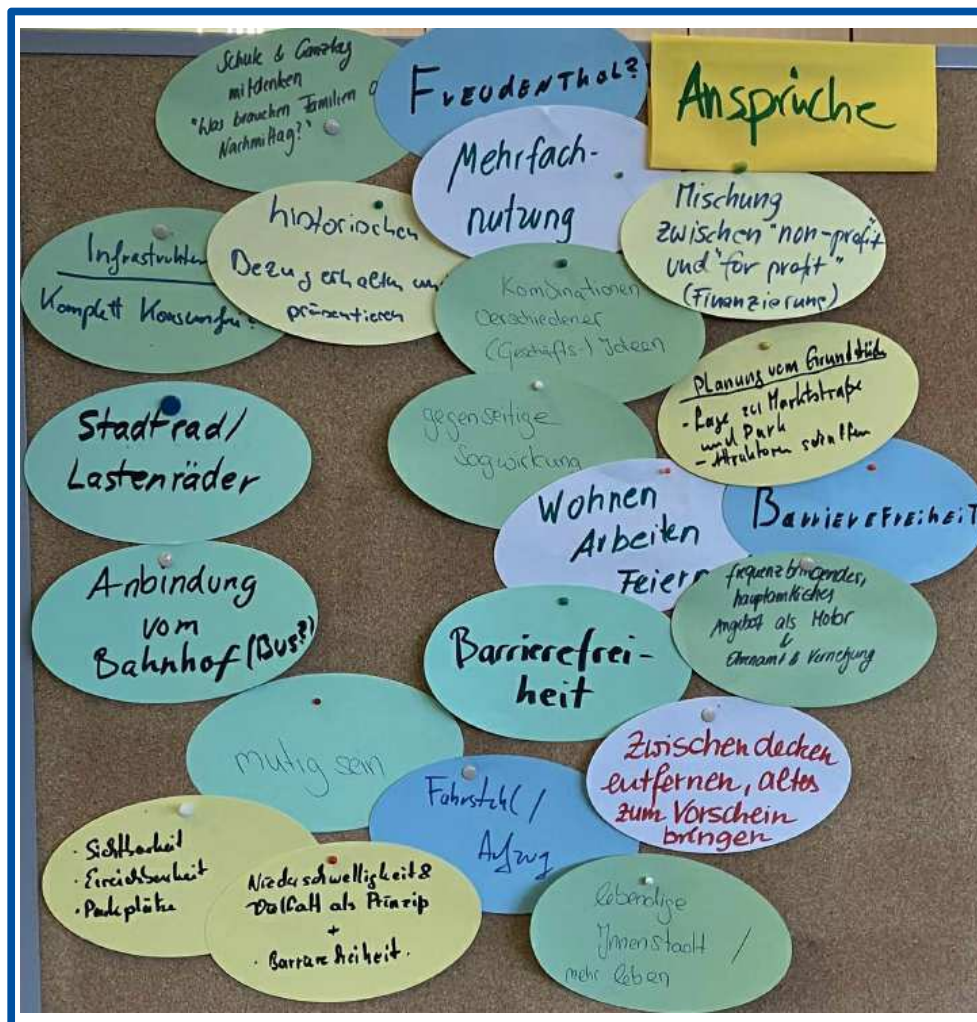 Ansprüche
Schule & Ganztag
mitdenken
"Was brauchen Familien
Nachmittag?"
FREUDENTHAL?
Mehrfach-
nutzung
Mischung
zwischen "non-profit"
und "for profit"
(Finanzierung)
Infrastruktur
Komplett Konsumfrei?
historischen
Bezug erhalten un
präsentieren
Kombinationen
verschiedener
(Geschäfts-) Ideen
Planung vom Grundstück
- Lage zu Marktstraße
und Park
- Attraktoren schaffen
Stadtrad/
Lastenräder
gegenseitige
Sogwirkung
Wohnen
Arbeiten
Feiern
BARRIEREFREIHEIT
Anbindung
vom
Bahnhof (Bus?)
Barrierefrei-
heit
frequenzbringendes,
hauptamtliches
Angebot als Motor
&
Ehrenamt & Vernetzung
mutig sein
Fahrstuhl /
Aufzug
Zwischendecken
entfernen, altes
zum Vorschein
bringen
· Sichtbarkeit
· Erreichbarkeit
· Parkplätze
Niederschwelligkeit &
Vielfalt als Prinzip
+
· Barrierefreiheit.
lebendige
Innenstadt /
mehr leben